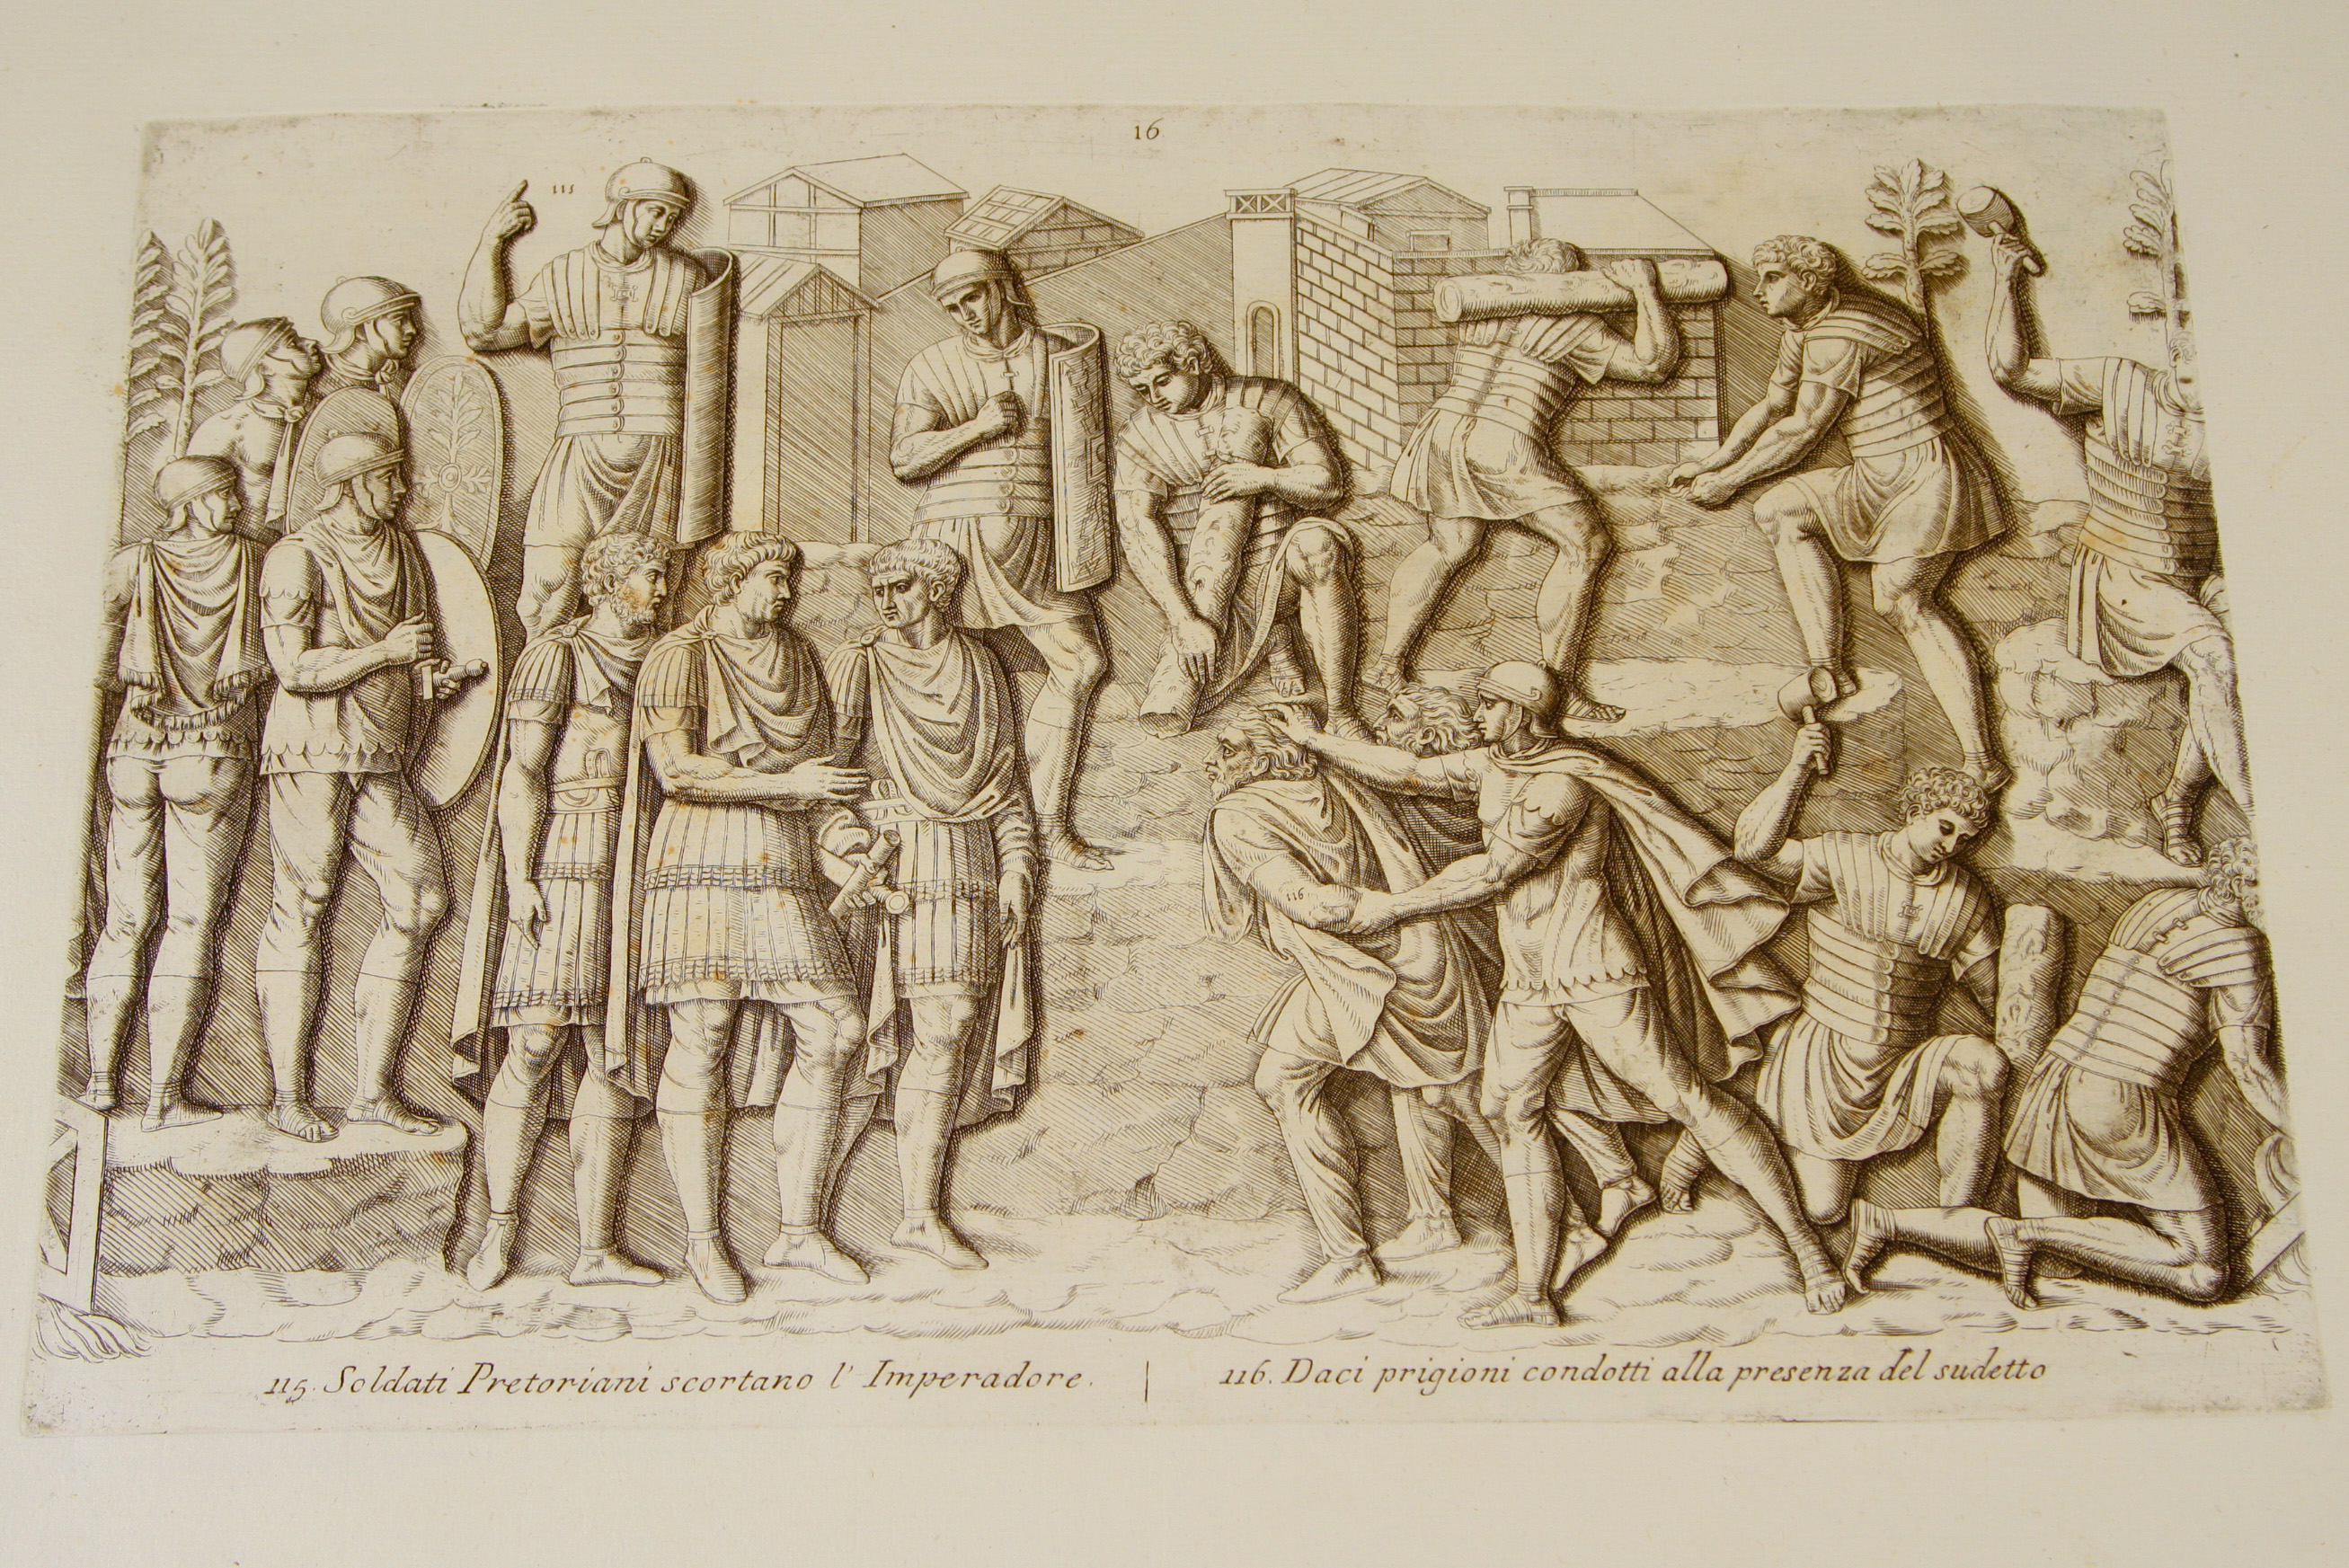 16
115
116
115. Soldati Pretoriani scortano l' Imperadore. | 116. Daci prigioni condotti alla presenza del sudetto